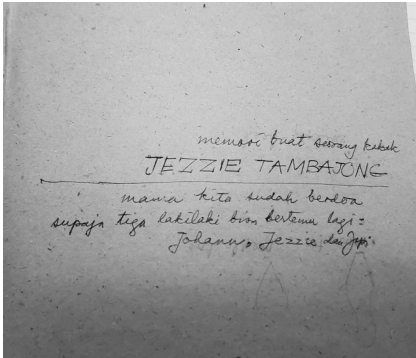 memori buat seorang kakak
JEZZIE TAMBAJONG
mama kita sudah berdoa
supaja tiga lakilaki bisa bertemu lagi:
Johann, Jezzie dan Japi